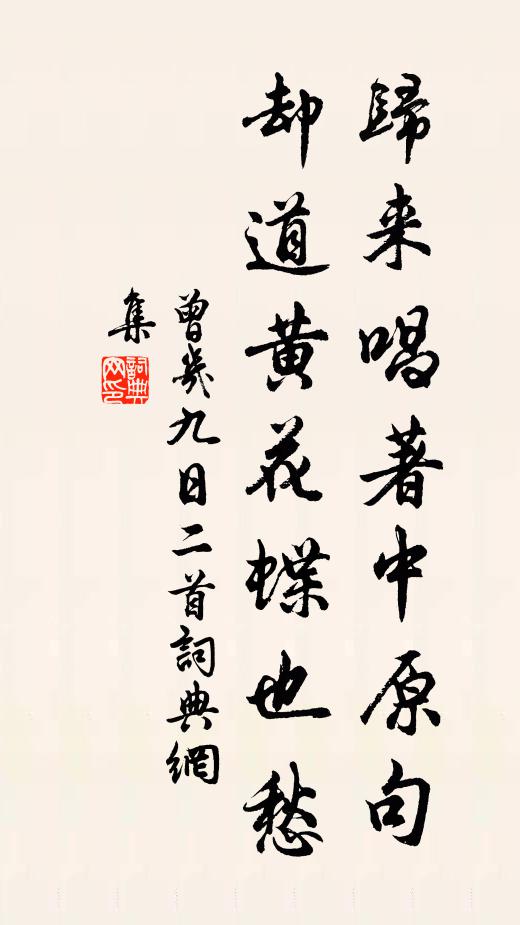 歸来唱著中原句
却道黄花蝶也愁
曾幾九日二首詞典網
集
詞典網印